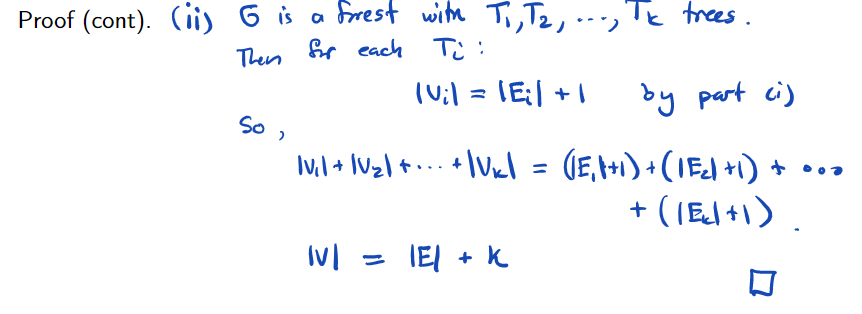 Proof (cont). (ii) G is a forest with T₁, T₂, ..., Tₖ trees.
Then for each Tᵢ :
|Vᵢ| = |Eᵢ| + 1 by part (i)
So,
|V₁| + |V₂| + ... + |Vₖ| = (|E₁|+1) + (|E₂|+1) + ...
+ (|Eₖ|+1).
|V| = |E| + K
□